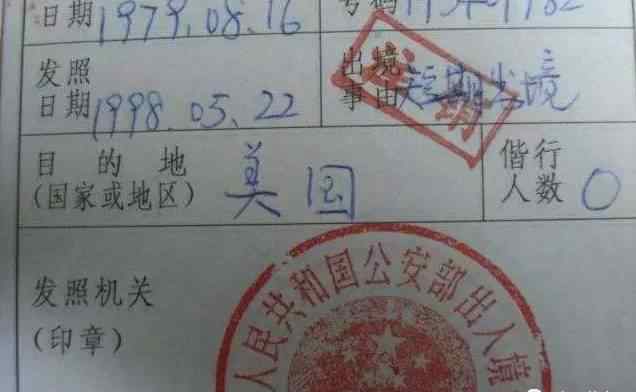 日期 1979.08.16 号码
发照日期 1998.05.22 出境事由 短期出境
目的地(国家或地区) 美国 偕行人数 0
发照机关(印章)
人民共和国公安部出入境